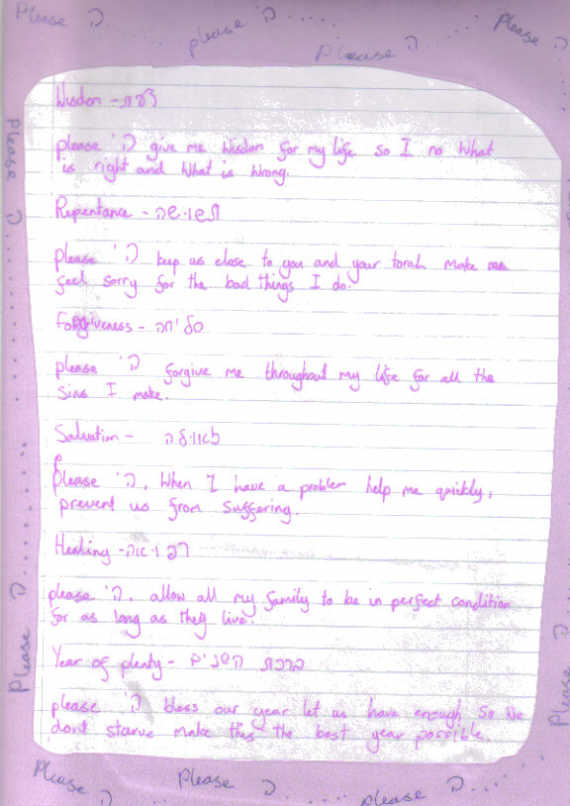 Please ה.....
please ה.....
Please ה.....
Please ה
Please ה.....
Wisdom - דעת
please ה' give me Wisdom for my life so I no What
is right and What is Wrong.
Repentance - תשובה
please ה' keep us close to you and your torah make me
feel sorry for the bad things I do.
Forgiveness - סליחה
please ה' forgive me throughout my life for all the
Sins I make.
Salvation - גאולה
please ה'. When I have a problem help me quickly,
prevent us from Suffering.
Healing - רפואה
please ה'. allow all my family to be in perfect condition
for as long as they live.
Year of plenty - ברכת השנים
please ה' bless our year let us have enough So We
dont starve make this the best year possible
Please ה.....
Please
Please ה
Please ה.....
please ה.....